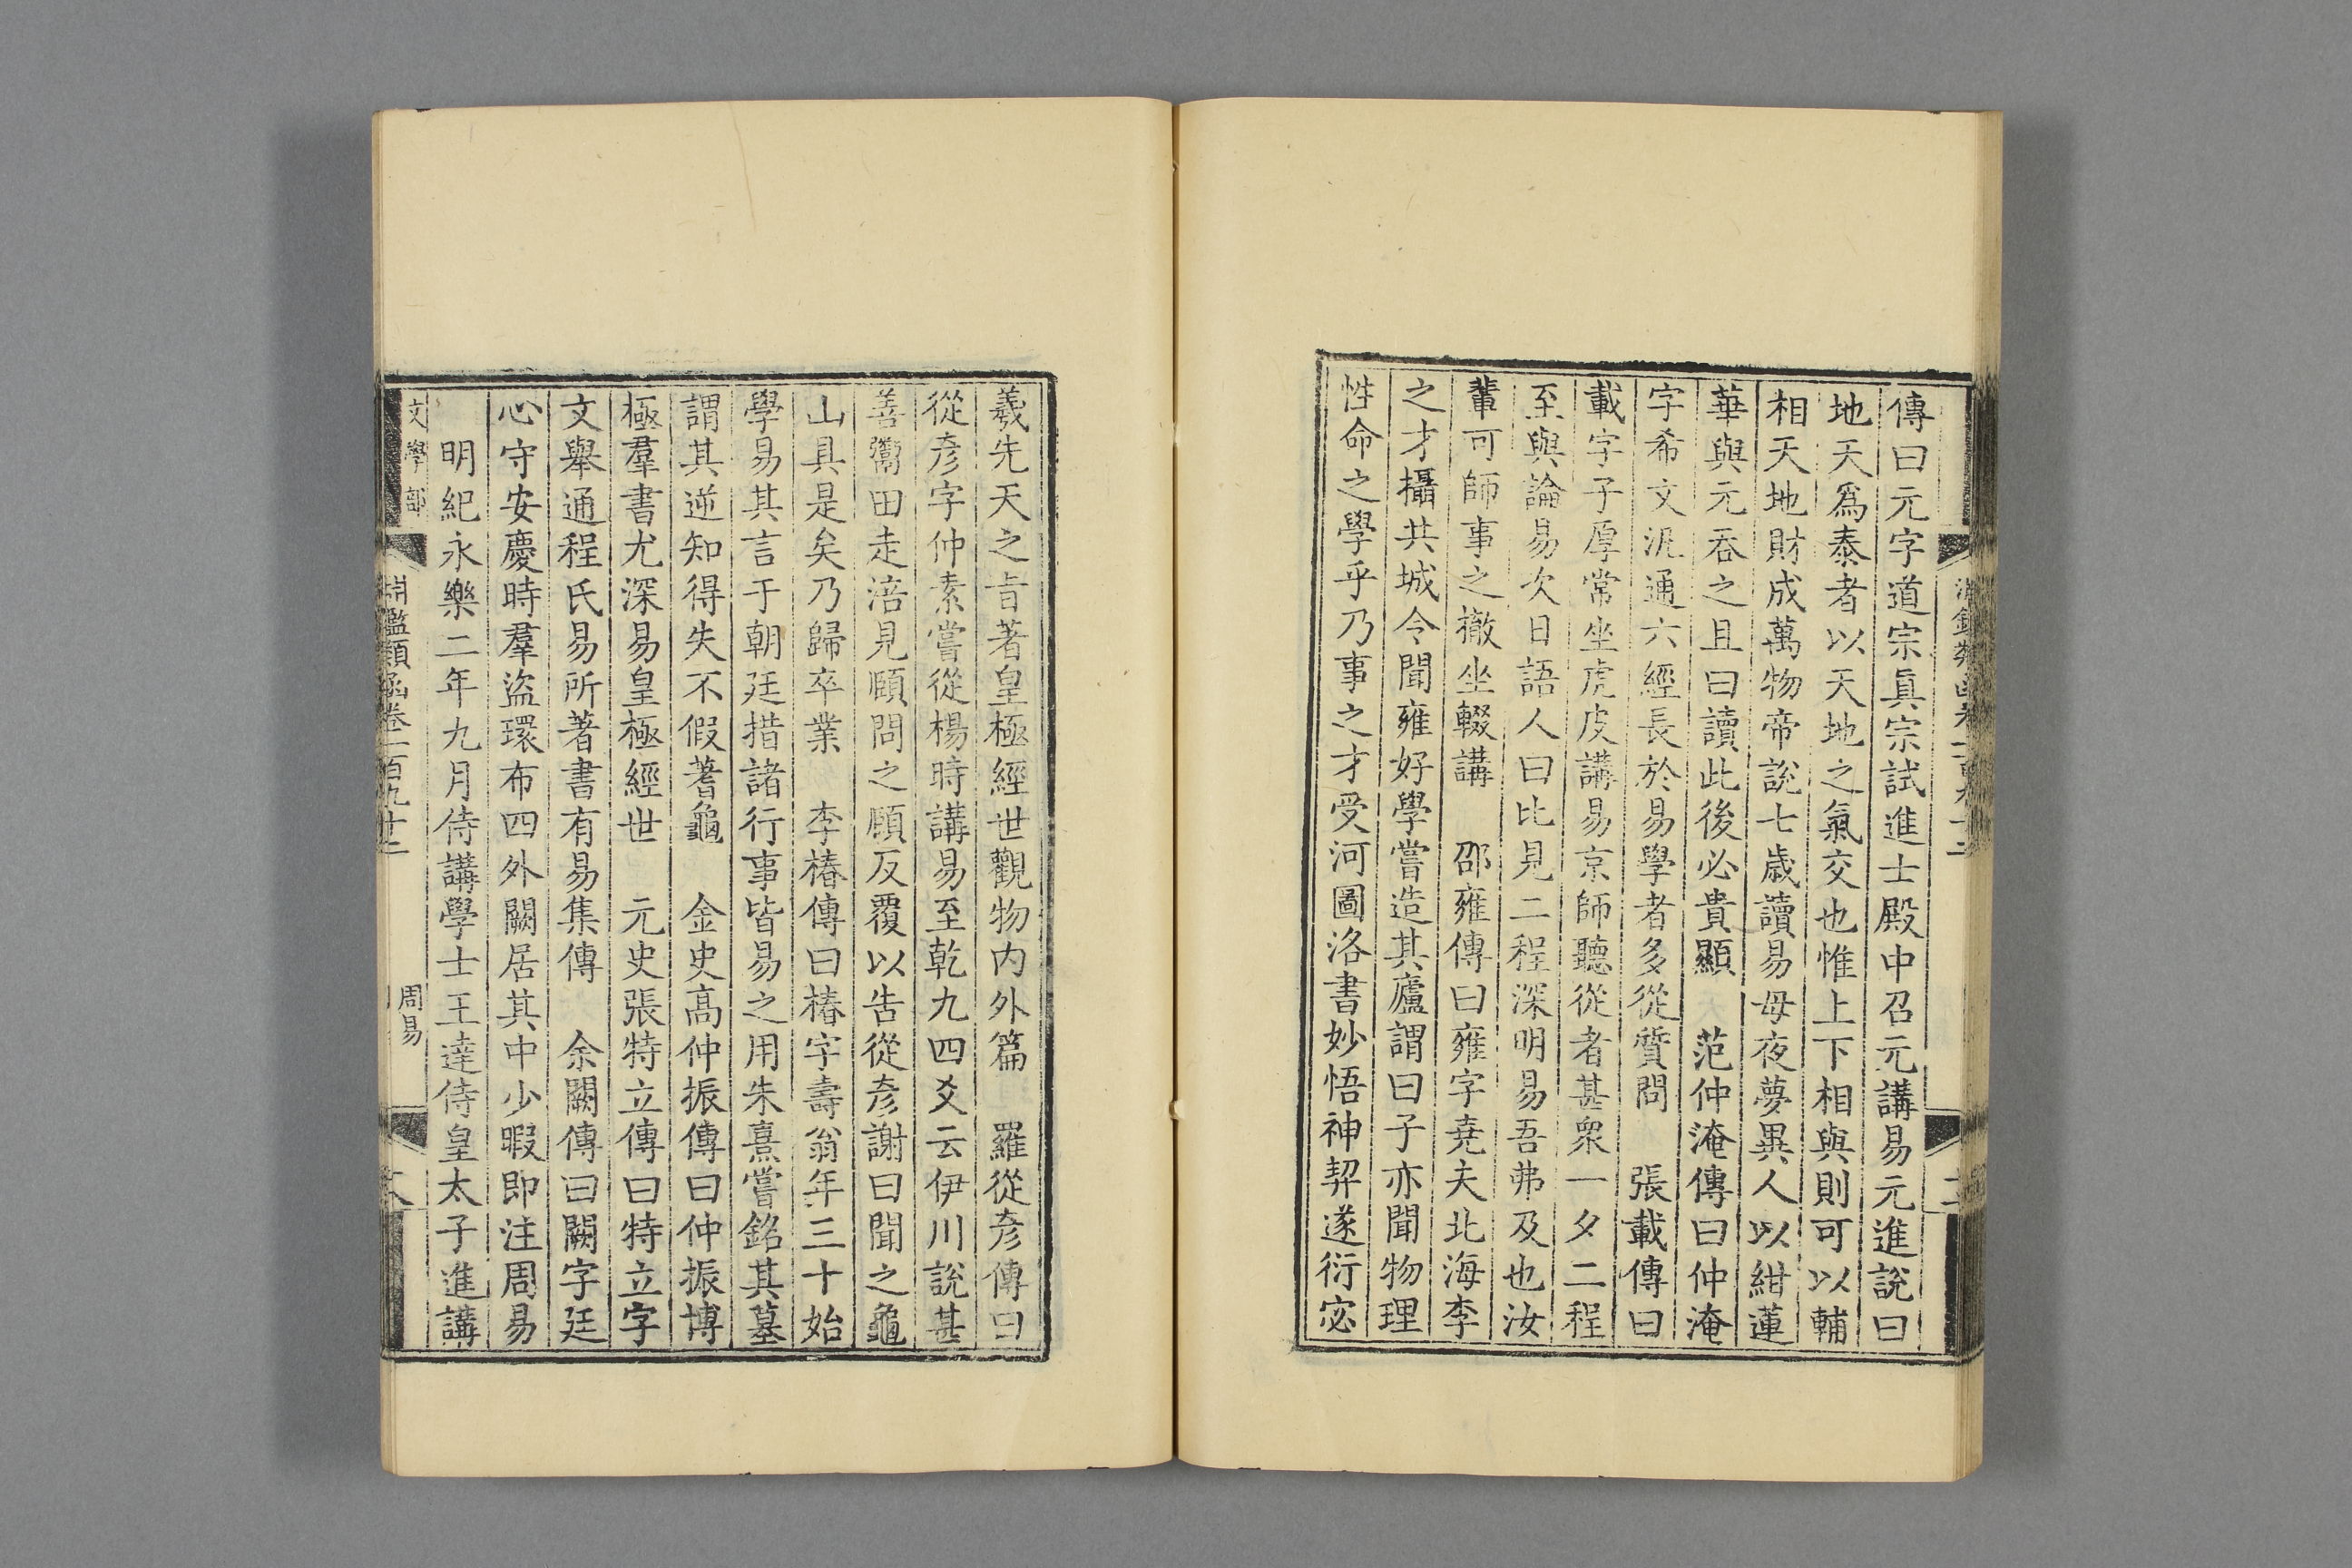 傳曰元字道宗眞宗試進士殿中召元講易元進說曰
地天爲泰者以天地之氣交也惟上下相與則可以輔
相天地財成萬物帝說七歲讀易母夜夢異人以紺蓮
華與元吞之且曰讀此後必貴顯 范仲淹傳曰仲淹
字希文汎通六經長於易學者多從質問 張載傳曰
載字子厚常坐虎皮講易京師聽從者甚衆一夕二程
至與論易次日語人曰比見二程深明易吾弗及也汝
輩可師事之撤坐輟講 邵雍傳曰雍字堯夫北海李
之才攝共城令聞雍好學嘗造其廬謂曰子亦聞物理
性命之學乎乃事之才受河圖洛書妙悟神契遂衍宓
羲先天之旨著皇極經世觀物內外篇 羅從彥傳曰
從彥字仲素嘗從楊時講易至乾九四爻云伊川說甚
善鬻田走涪見頤問之頤反覆以告從彥謝曰聞之龜
山具是矣乃歸卒業 李椿傳曰椿字壽翁年三十始
學易其言于朝廷措諸行事皆易之用朱熹嘗銘其墓
謂其逆知得失不假蓍龜 金史高仲振傳曰仲振博
極羣書尤深易皇極經世 元史張特立傳曰特立字
文舉通程氏易所著書有易集傳 余闕傳曰闕字廷
心守安慶時羣盜環布四外闕居其中少暇即注周易
明紀永樂二年九月侍講學士王達侍皇太子進講
文學部
淵鑑類函卷一百九十二
周易